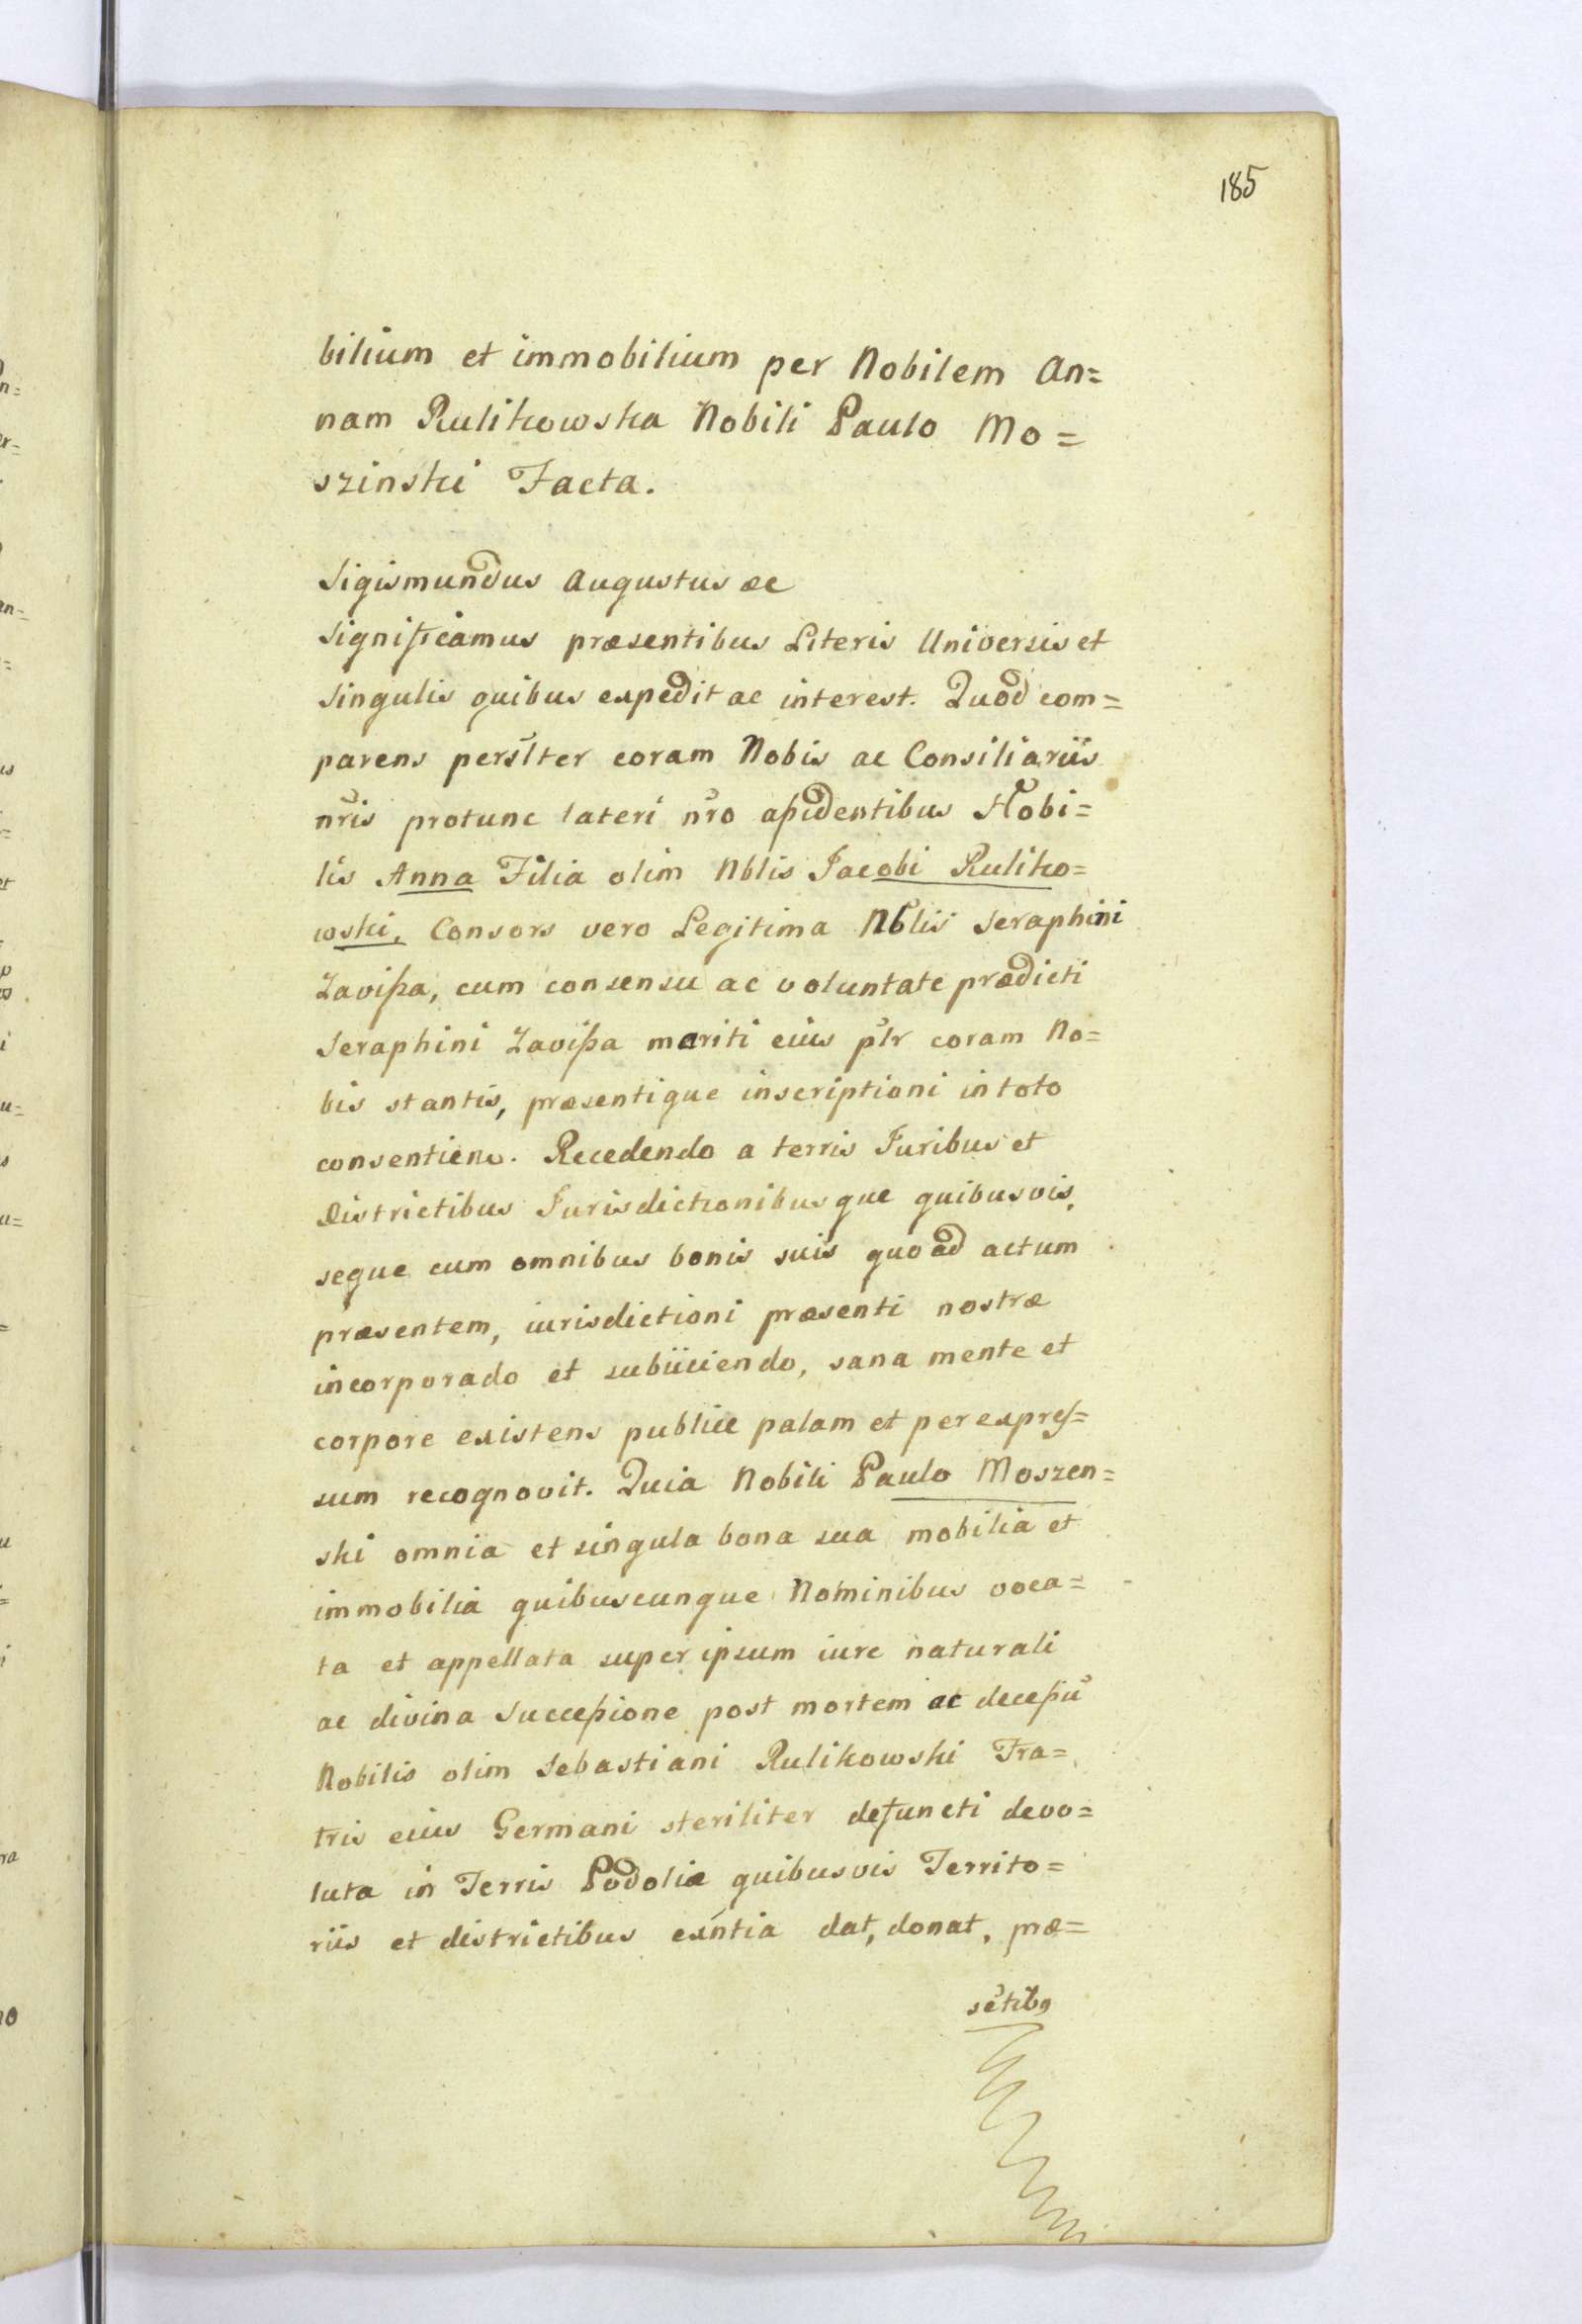 185
bilium et immobilium per Nobilem An=
nam Rulikowska Nobili Paulo Mo=
szinski Facta.
Sigismundus Augustus &c
Significamus præsentibus Literis Universis et
Singulis quibus expedit ac interest. Quod com=
parens persl̃ter coram Nobis ac Consiliariis
nr̃is protunc lateri nr̃o aßidentibus Nobi=
lis Anna Filia olim Nblis Jacobi Ruliko=
wski, Consors vero Legitima Nblis Seraphini
Zavißa, cum consensu ac voluntate prædicti
Seraphini Zavißa mariti eius pl̃r coram No=
bis stantis, præsentique inscriptioni in toto
consentiens. Recedendo a terris Juribus et
Districtibus Jurisdictionibusque quibusvis,
seque cum omnibus bonis suis quo ad actum
præsentem, iurisdictioni præsenti nostræ
incorporado et subiiciendo, sana mente et
corpore existens publice palam et per expres=
sum recognovit. Quia Nobili Paulo Moszen=
ski omnia et singula bona sua mobilia et
immobilia quibuscunque Nominibus voca=
ta et appellata super ipsum iure naturali
ac divina Succeßione post mortem ac deceßũ
Nobilis olim Sebastiani Rulikowski Fra=
tris eius Germani steriliter defuncti devo=
luta in Terris Podoliæ quibusvis Territo=
riis et districtibus exñtia dat, donat, præ=
sẽtibꝯ